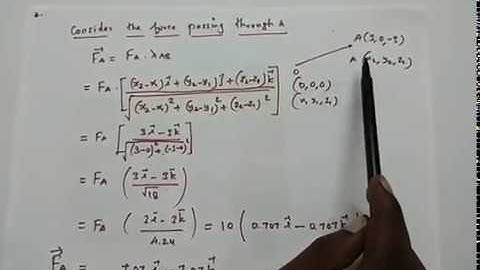 2.
Consider the force passing through A
F⃗A = FA . λAB
= FA . [ (x2-x1)i⃗ + (y2-y1)j⃗ + (z2-z1)k⃗ / √(x2-x1)² + (y2-y1)² + (z2-z1)² ]
O
(0,0,0)
(x1, y1, z1)
A(3,0,-3)
A
y2, z2)
= FA [ 3i⃗ - 3k⃗ / √(3-0)² + (-3-0)² ]
= FA ( 3i⃗ - 3k⃗ / √18 )
= FA ( 3i⃗ - 3k⃗ / 4.24 ) = 10 ( 0.707 i⃗ - 0.707 k⃗
F⃗A =